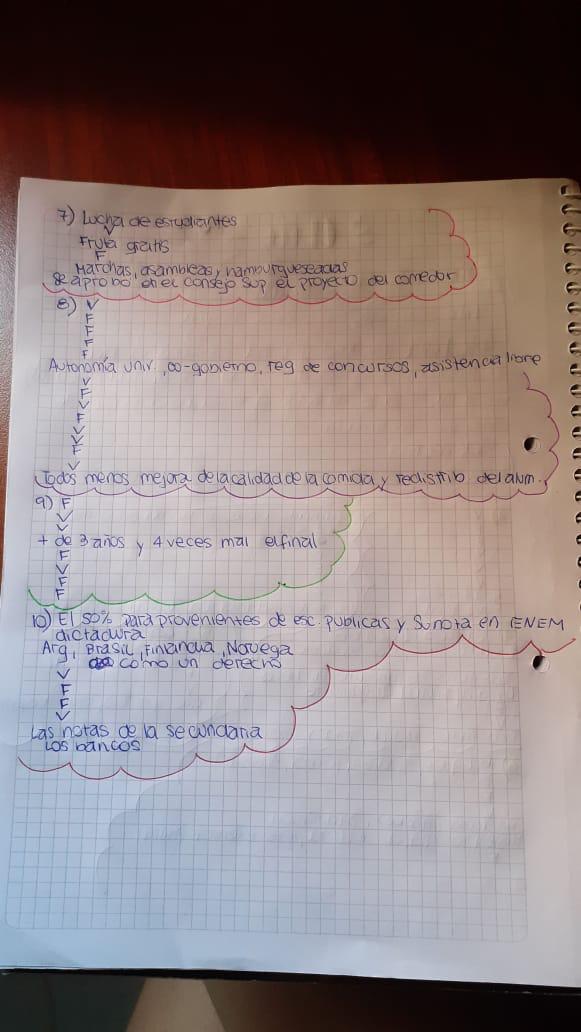 7) Lucha de estudiantes
V
Fruta gratis
F
Marchas, asambleas, hamburgueseadas
Se aprobó en el consejo sup el proyecto del comedor
8) V
F
F
F
Autonomía univ., co-gobierno, reg de concursos, asistencia libre
V
F
V
F
V
V
F
V
Todos menos mejora de la calidad de la comida y redistrib del alum.
9) F
V
V
+ de 3 años y 4 veces mal el final
F
V
F
F
10) El 50% para provenientes de esc. publicas y su nota en ENEM
dictadura
Arg, Brasil, Finlandia, Noruega
como un derecho
V
F
F
V
Las notas de la secundaria
Los bancos